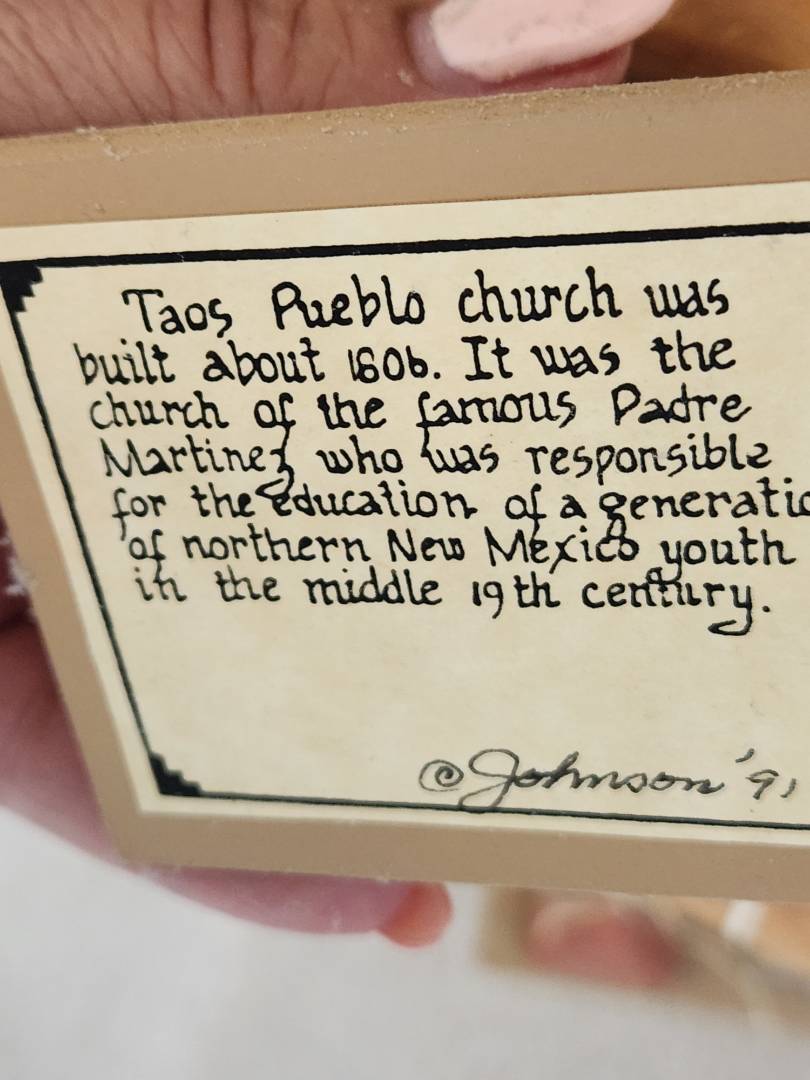 Taos Pueblo church was
built about 1806. It was the
church of the famous Padre
Martinez who was responsible
for the education of a generatio
of northern New Mexico youth
in the middle 19th century.
© Johnson '91